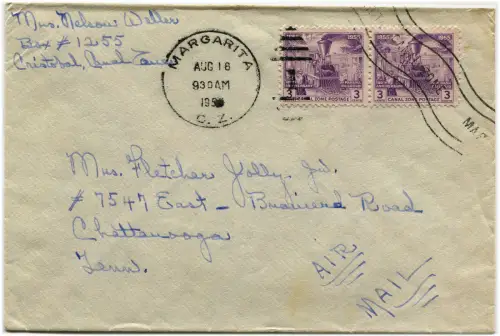 Mrs. Nelson Weller
Box # 1255
Cristobal, Canal Zone
MARGARITA
AUG 16
930AM
195
C. Z.
1855 1955
3 CANAL ZONE POSTAGE 3
1855 1955
3 CANAL ZONE POSTAGE 3
MAR
Mrs. Fletcher Jolly, Jr.
# 7547 East - Brainerd Road
Chattanooga
Tenn.
AIR
MAIL